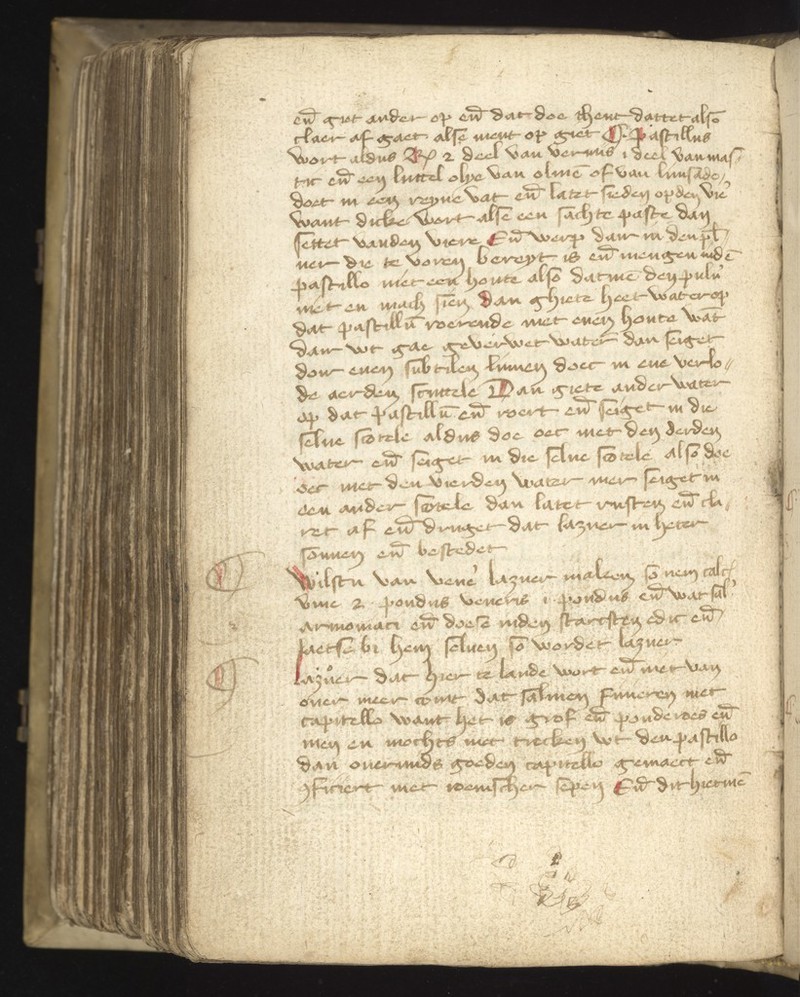 en̄ giet ander op en̄ dat doe thent dattet also
claer af gaet alse ment op giet ¶ Pastillus
wort aldus R 2 deel van vernis 1 deel van mas-
tic en̄ een luttel olye van olive of van linsade
doet in een reyne vat en̄ latet sieden op den vier
want dicke wort alse een sachte paste dan
settet vanden viere En̄ werp dair in den pul-
ver die te voren bereyt is en̄ mengen mede
pastillo met een houte also datmē den pulver
niet en mach sien Dan ghiete heet water op
dat pastillū roerende met enen houte wāt
dair wt gae geverwet water dan seiget
dour enen subtilen linnen doec in ene verlo-
de aerden scuttele Dan giete ander water
op dat pastillū en̄ roert en̄ seiget in die
selve scotele aldus doe oec met den derden
water en̄ seiget in die selve scotele also doe
oec met den vierden water mer seiget in
een ander scotele dan latet rusten en̄ cla-
ret af en̄ druget dat lazuer in heter
sonnen en̄ bestedet
Wilstu van venen lazuer maken so nem calc
vive 2 pondus veneris 1 pondus en̄ wat sal
armoniaci en̄ doese inden starcsten edic en̄
saetse bi hem selven so wordet lazuer
Lazuer dat hier te lande wort en̄ niet van
over meer comt dat salmen fineren met
capitello want het is grof en̄ ponderoes en̄
men en mochts niet trecken wt den pastillo
dan overmids goeden capitello gemaect en̄
ꝯficiert met roemscher sepen En̄ dit hietmē